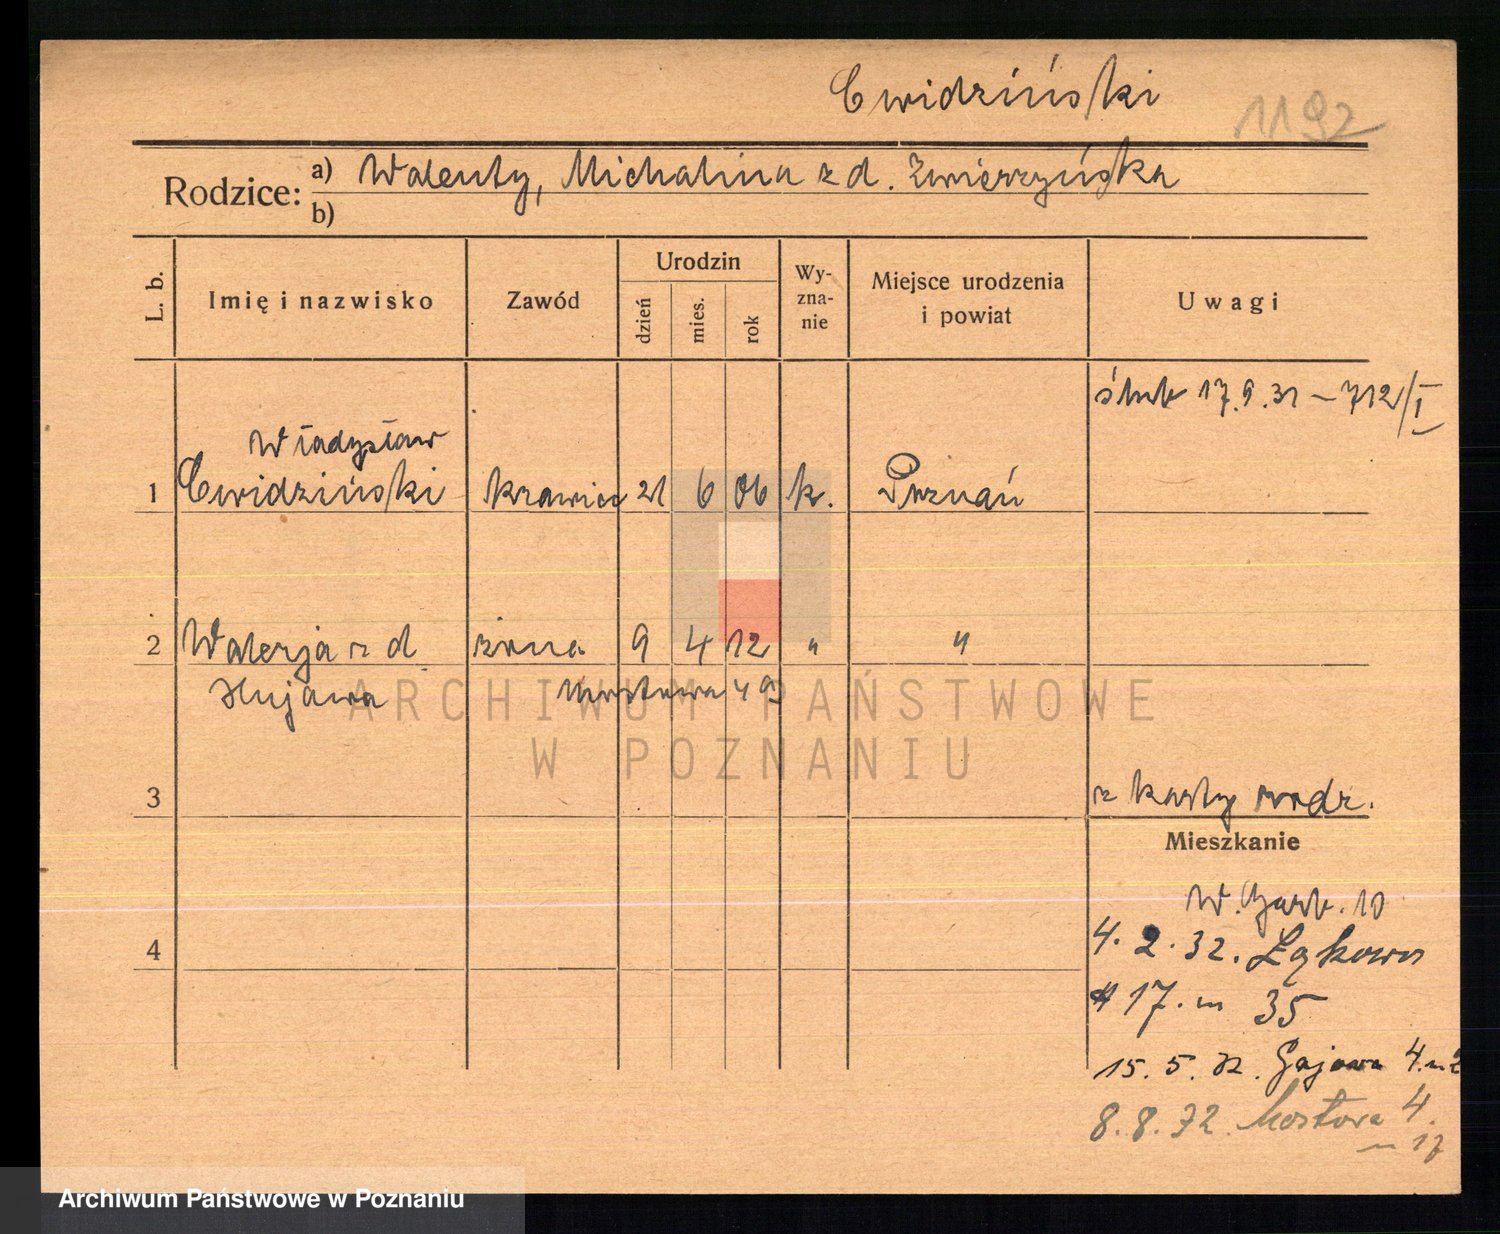 Cwidziński
1192
Rodzice: a) Walenty, Michalina z d. Zwierzyńska
b)
L. b.
Imię i nazwisko
Zawód
Urodzin
dzień
mies.
rok
Wy-
zna-
nie
Miejsce urodzenia
i powiat
Uwagi
ślub 17.9.31 – 712/I
Władysław
1 Cwidziński krawiec 21 6 06 k. Poznań
2 Walerja z d żona 9 4 12 " "
Kujawa
3
z karty rodz.
Mieszkanie
W. Garb. 10
4
4. 2. 32. Łąkowa
17. m 35
15. 5. 32. Gajowa 4. m 2
8. 8. 32. Mostowa 4.
m 17
ARCHIWUM PAŃSTWOWE
W POZNANIU
Archiwum Państwowe w Poznaniu